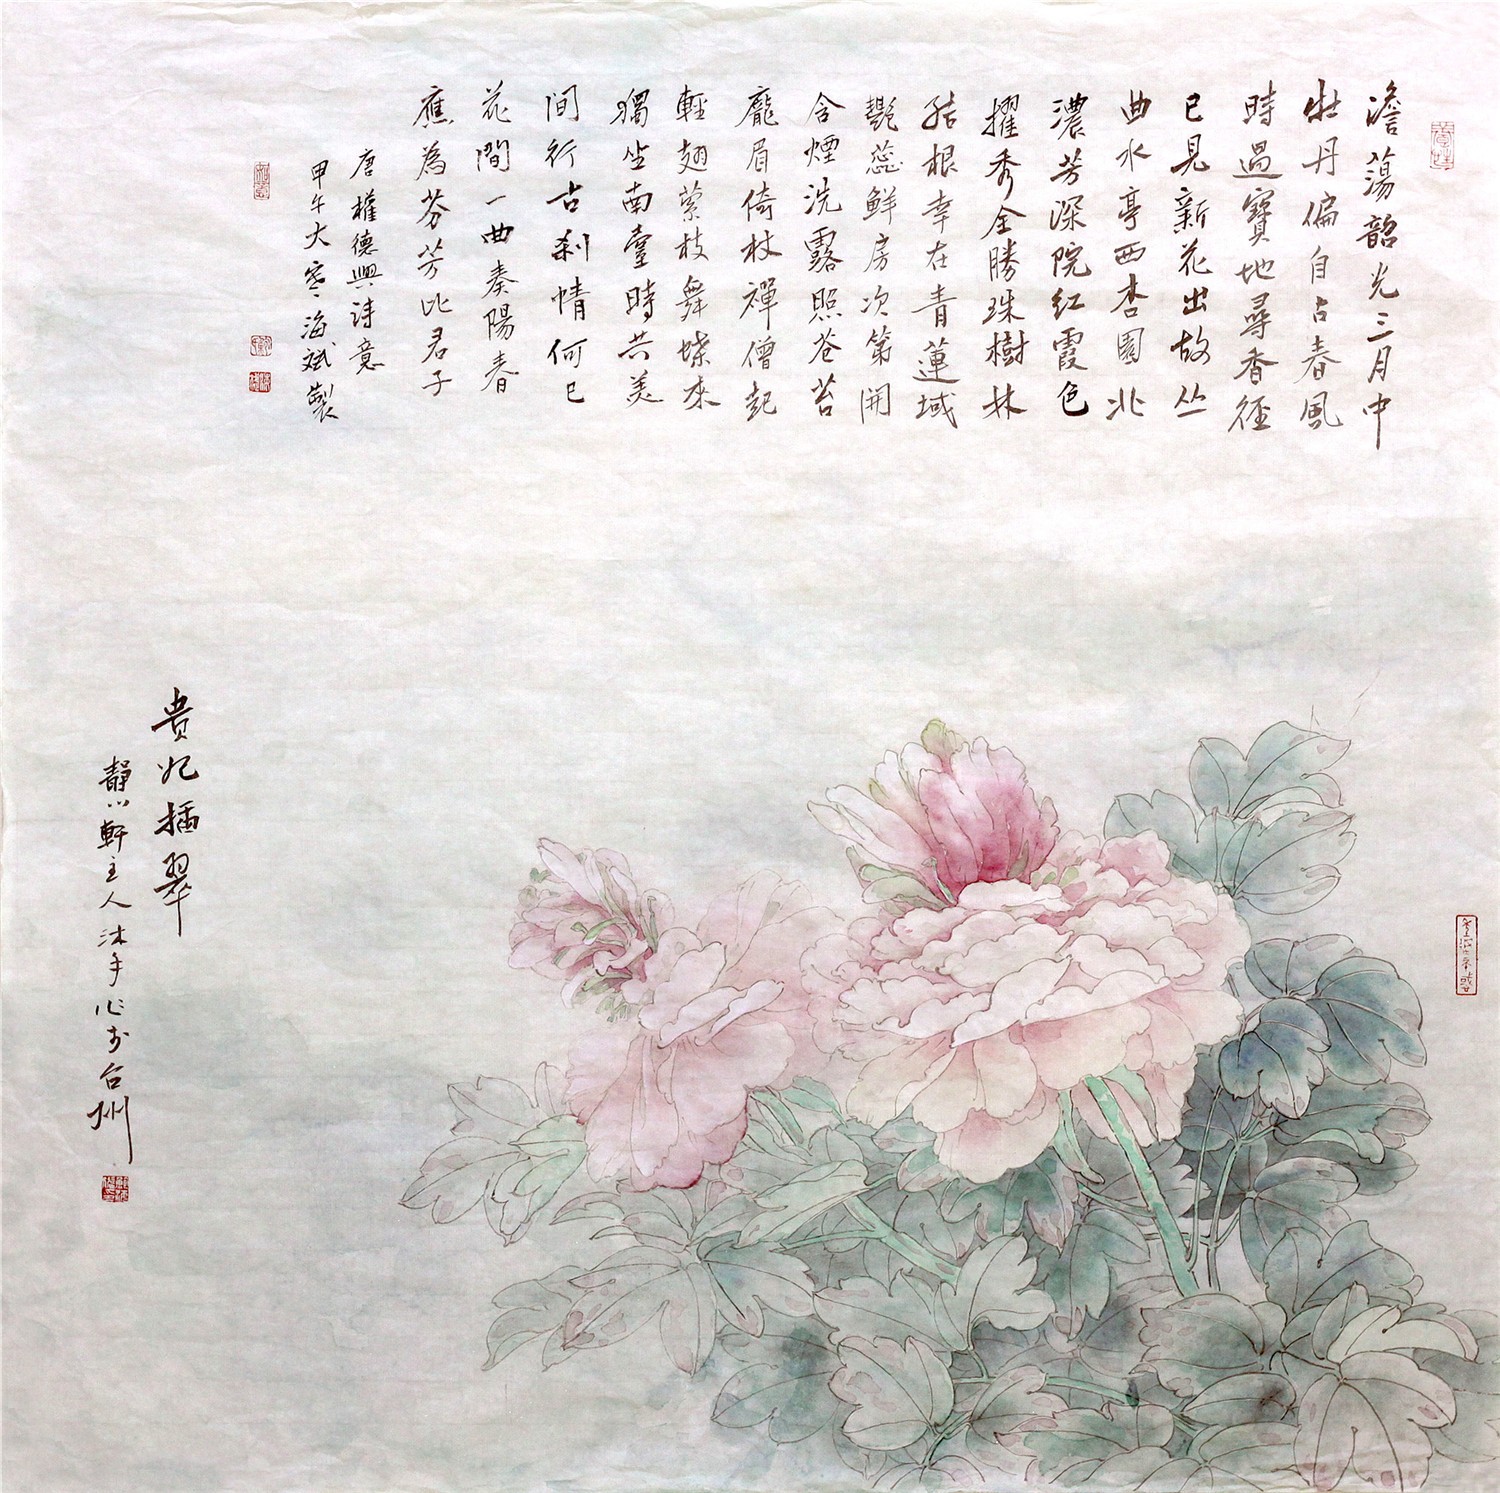 澹蕩韶光三月中
牡丹偏自占春風
時過寶地尋香徑
已見新花出故丛
曲水亭西杏園北
濃芳深院红霞色
擢秀全勝珠樹林
结根幸在青蓮域
艷蕊鮮房次第開
含煙洗露照苍苔
龐眉倚杖禪僧起
輕翅萦枝舞蝶来
獨坐南臺時共美
间行古刹情何已
花間一曲奏陽春
應為芬芳比君子
唐權德興诗意
甲午大寒海斌製
贵妃插翠
靜心軒主人沐手作於台州